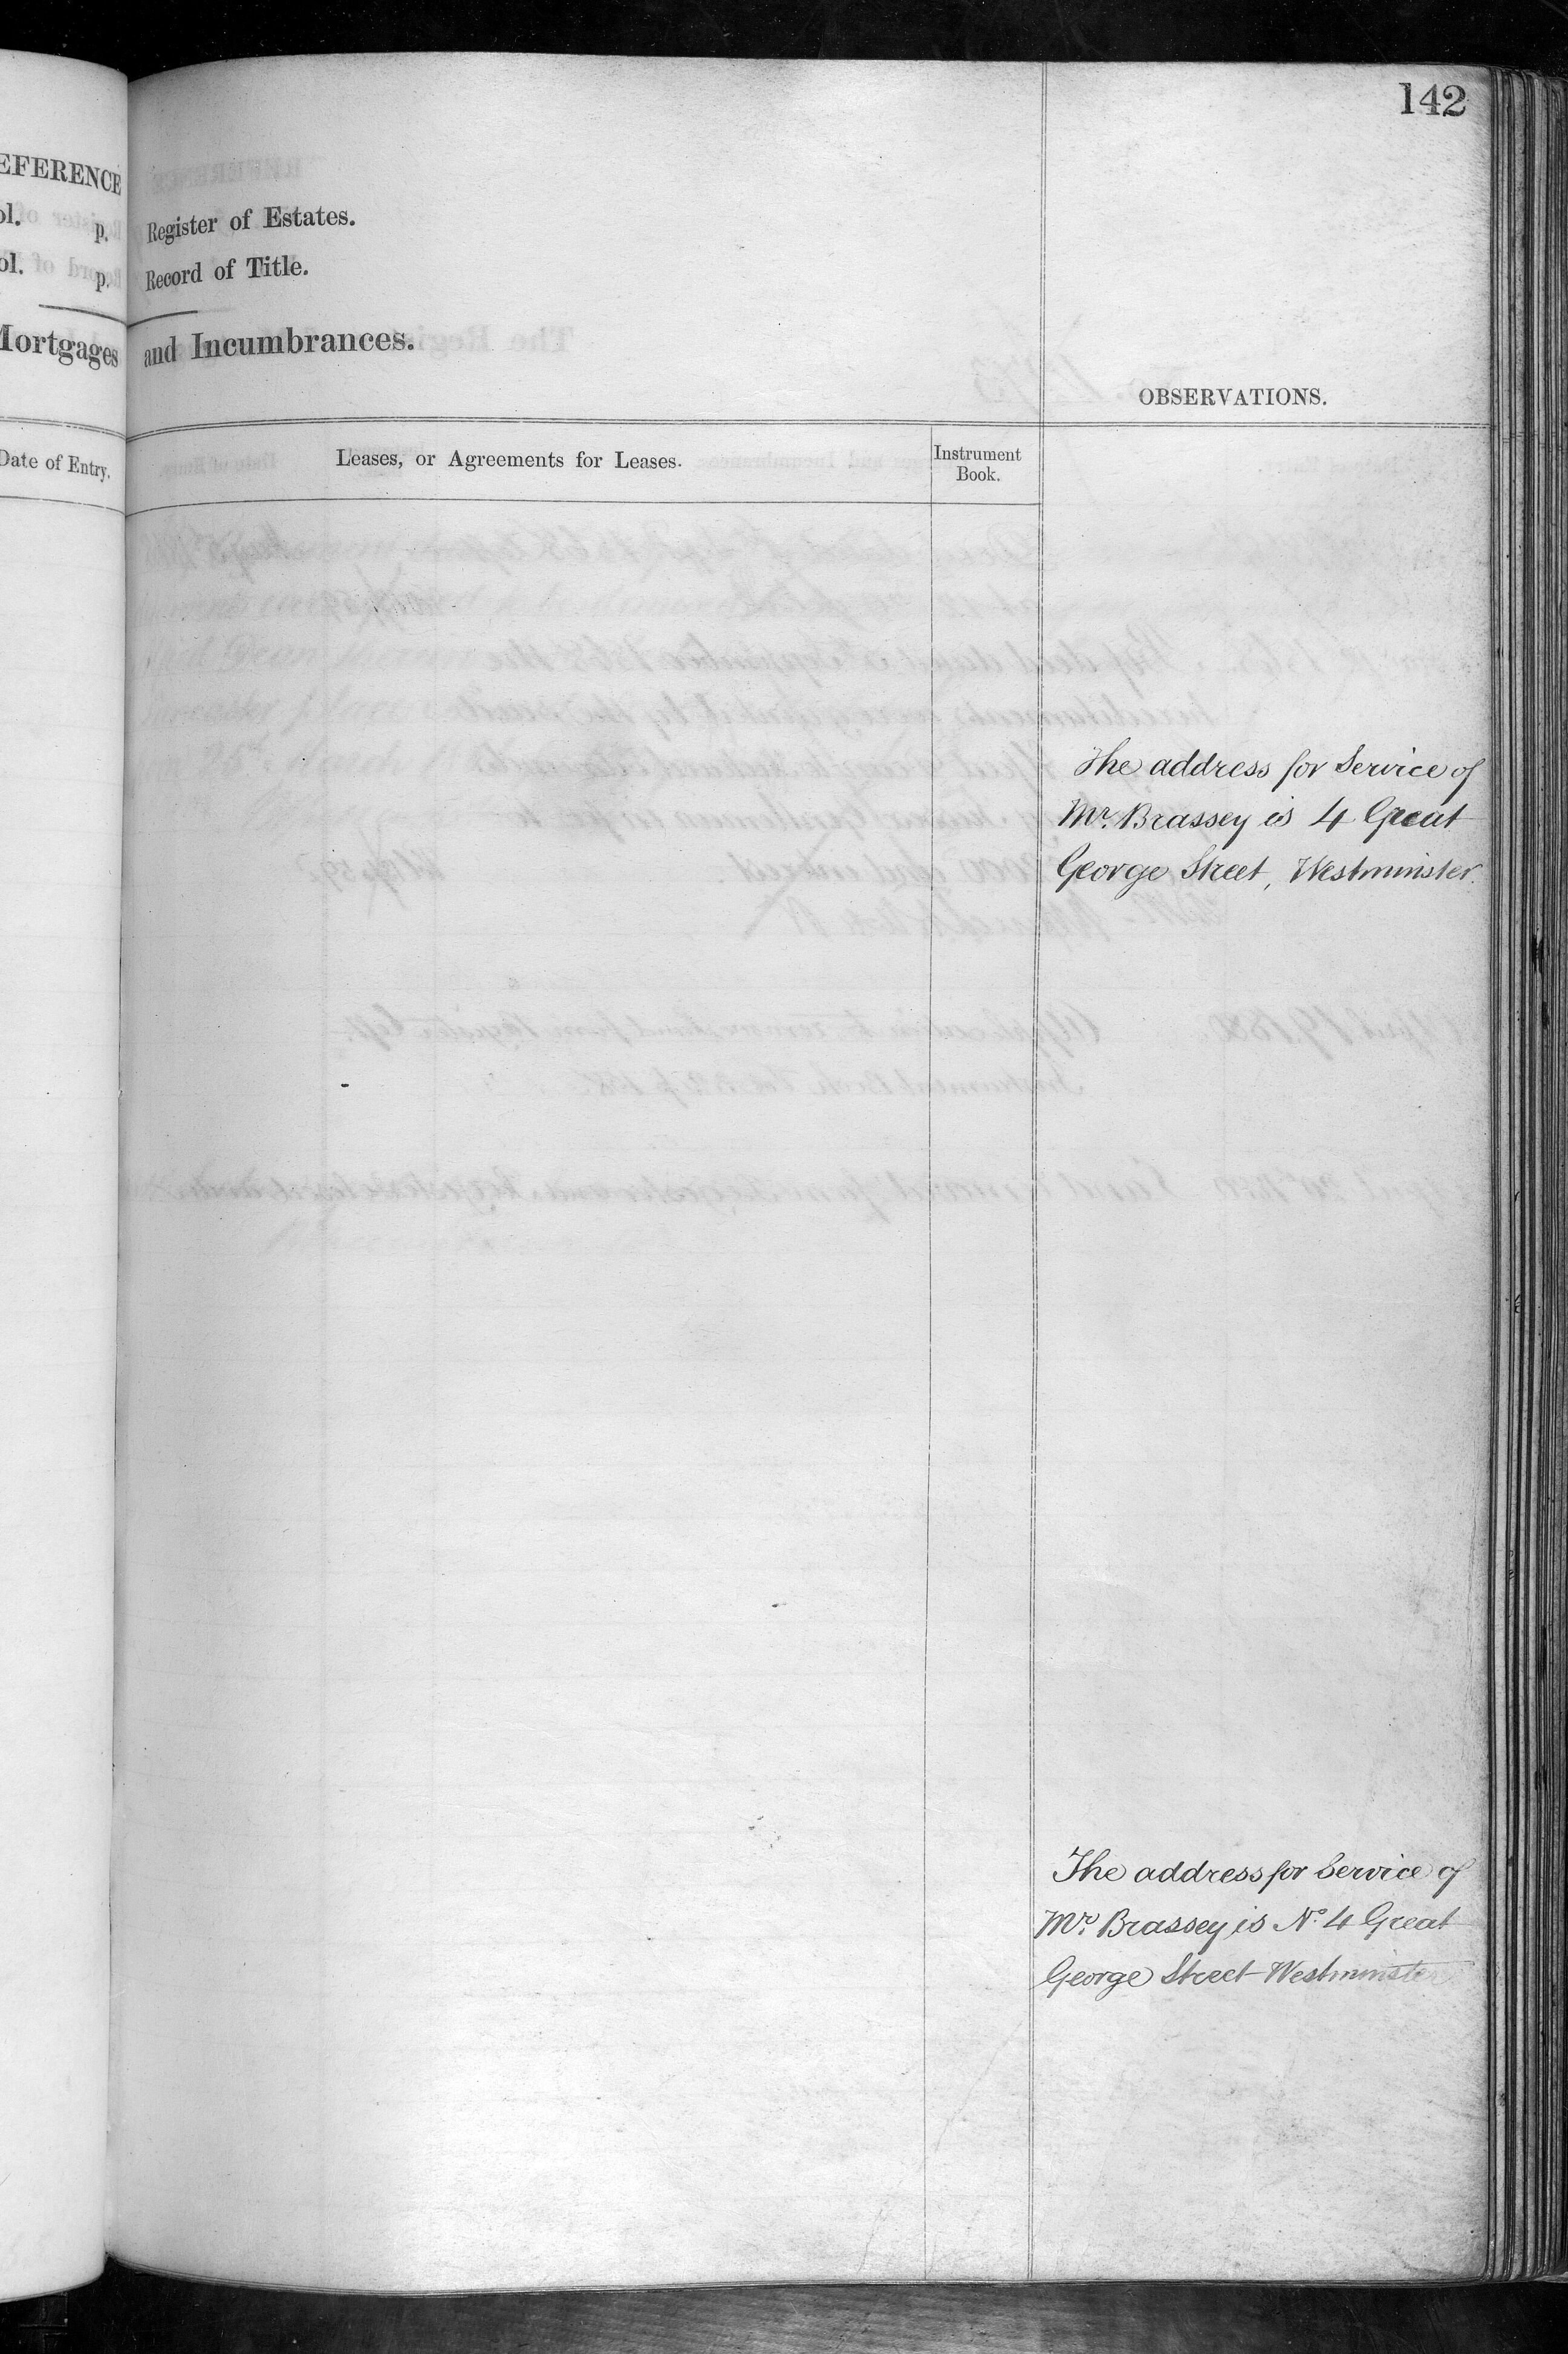 142
EFERENCE
ol. p.
ol. p.
Mortgages
Date of Entry.
Register of Estates.
Record of Title.
and Incumbrances.
OBSERVATIONS.
Leases, or Agreements for Leases.
Instrument
Book.
The address for Service of
Mr. Brassey is 4 Great
George Street, Westminster.
The address for Service of
Mr. Brassey is No. 4 Great
George Street Westminster